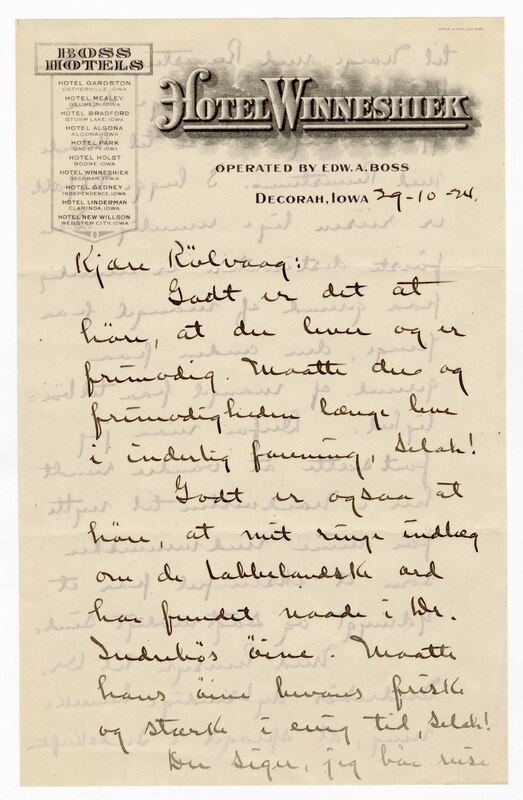 BOSS
HOTELS
HOTEL GARDSTON
ESTHERVILLE, IOWA
HOTEL MEALEY
OELWEIN, IOWA
HOTEL BRADFORD
STORM LAKE, IOWA
HOTEL ALGONA
ALGONA, IOWA
HOTEL PARK
SAC CITY, IOWA
HOTEL HOLST
BOONE, IOWA
HOTEL WINNESHIEK
DECORAH, IOWA
HOTEL GEDNEY
INDEPENDENCE, IOWA
HOTEL LINDERMAN
CLARINDA, IOWA
HOTEL NEW WILLSON
WEBSTER CITY, IOWA
HOTEL WINNESHIEK
OPERATED BY EDW. A. BOSS
DECORAH, IOWA 29-10-24.
Kjære Rölvaag:
Godt er det at
höre, at du lever og er
frimodig. Maatte du og
frimodigheden længe leve
i inderlig forening, Selah!
Godt er ogsaa at
höre, at mit ringe indlæg
om de labbelandske ord
har fundet naade i Dr.
Indrebös öine. Maatte
hans öine bevares friske
og stærke i evig tid, Selah!
Du siger, jeg bör reise